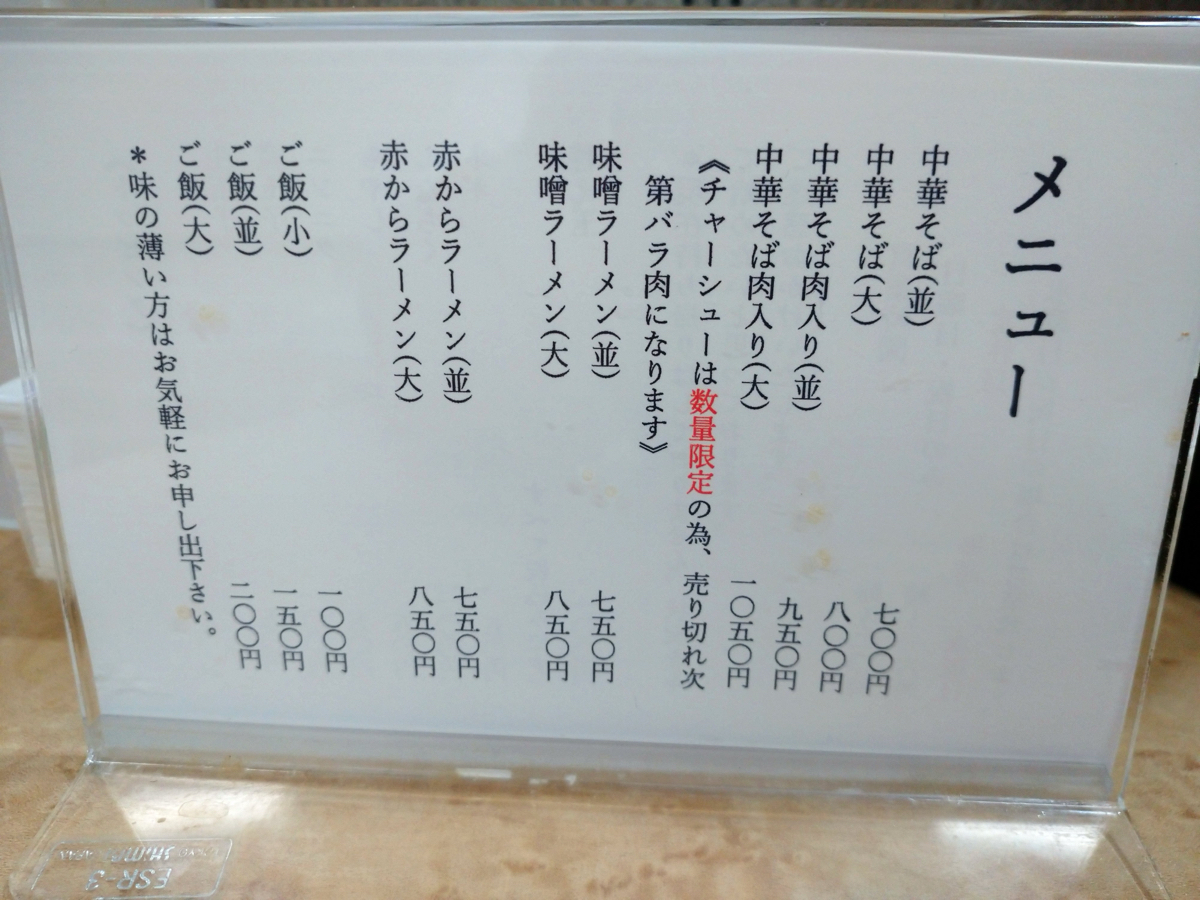 メニュー
中華そば(並) 七〇〇円
中華そば(大) 八〇〇円
中華そば肉入り(並) 九五〇円
中華そば肉入り(大) 一〇五〇円
《チャーシューは数量限定の為、売り切れ次
第バラ肉になります》
味噌ラーメン(並) 七五〇円
味噌ラーメン(大) 八五〇円
赤からラーメン(並) 七五〇円
赤からラーメン(大) 八五〇円
ご飯(小) 一〇〇円
ご飯(並) 一五〇円
ご飯(大) 二〇〇円
*味の薄い方はお気軽にお申し出下さい。
ESR-3